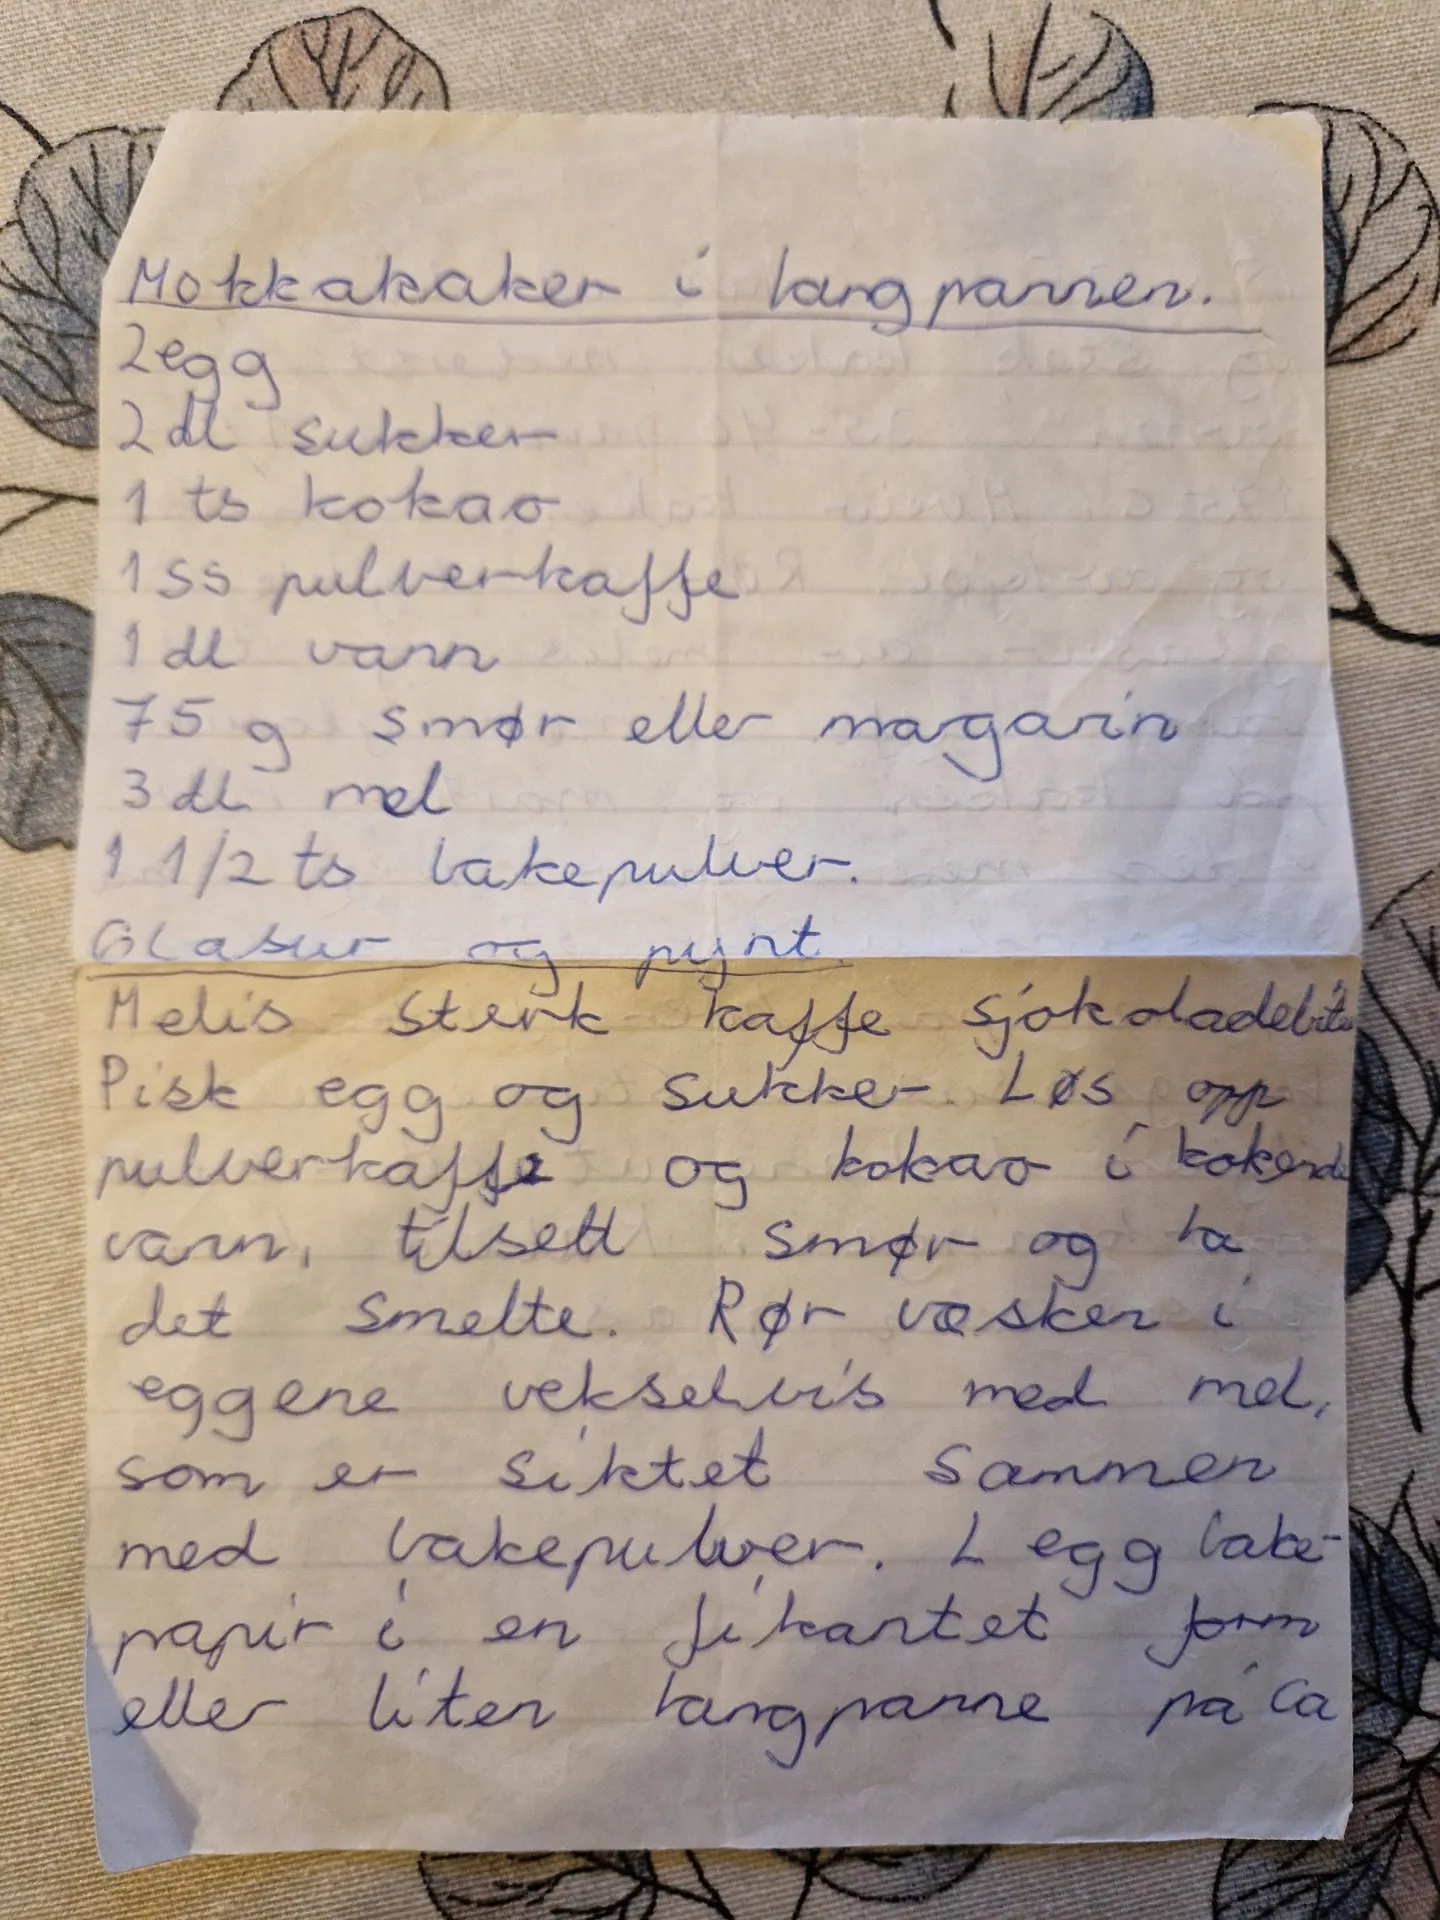 Mokkakaker i langpannen.
2 egg
2 dl sukker
1 ts kokao
1 ss pulverkaffe
1 dl vann
75 g smør eller magarin
3 dl mel
1 1/2 ts bakepulver.
Glasur og pynt.
Melis sterk kaffe sjokoladebiter
Pisk egg og sukker. Løs opp
pulverkaffe og kokao i kokende
vann, tilsett smør og la
det smelte. Rør væsken i
eggene vekselvis med mel,
som er siktet sammen
med bakepulver. Legg bake-
papir i en fikantet form
eller liten langpanne på ca